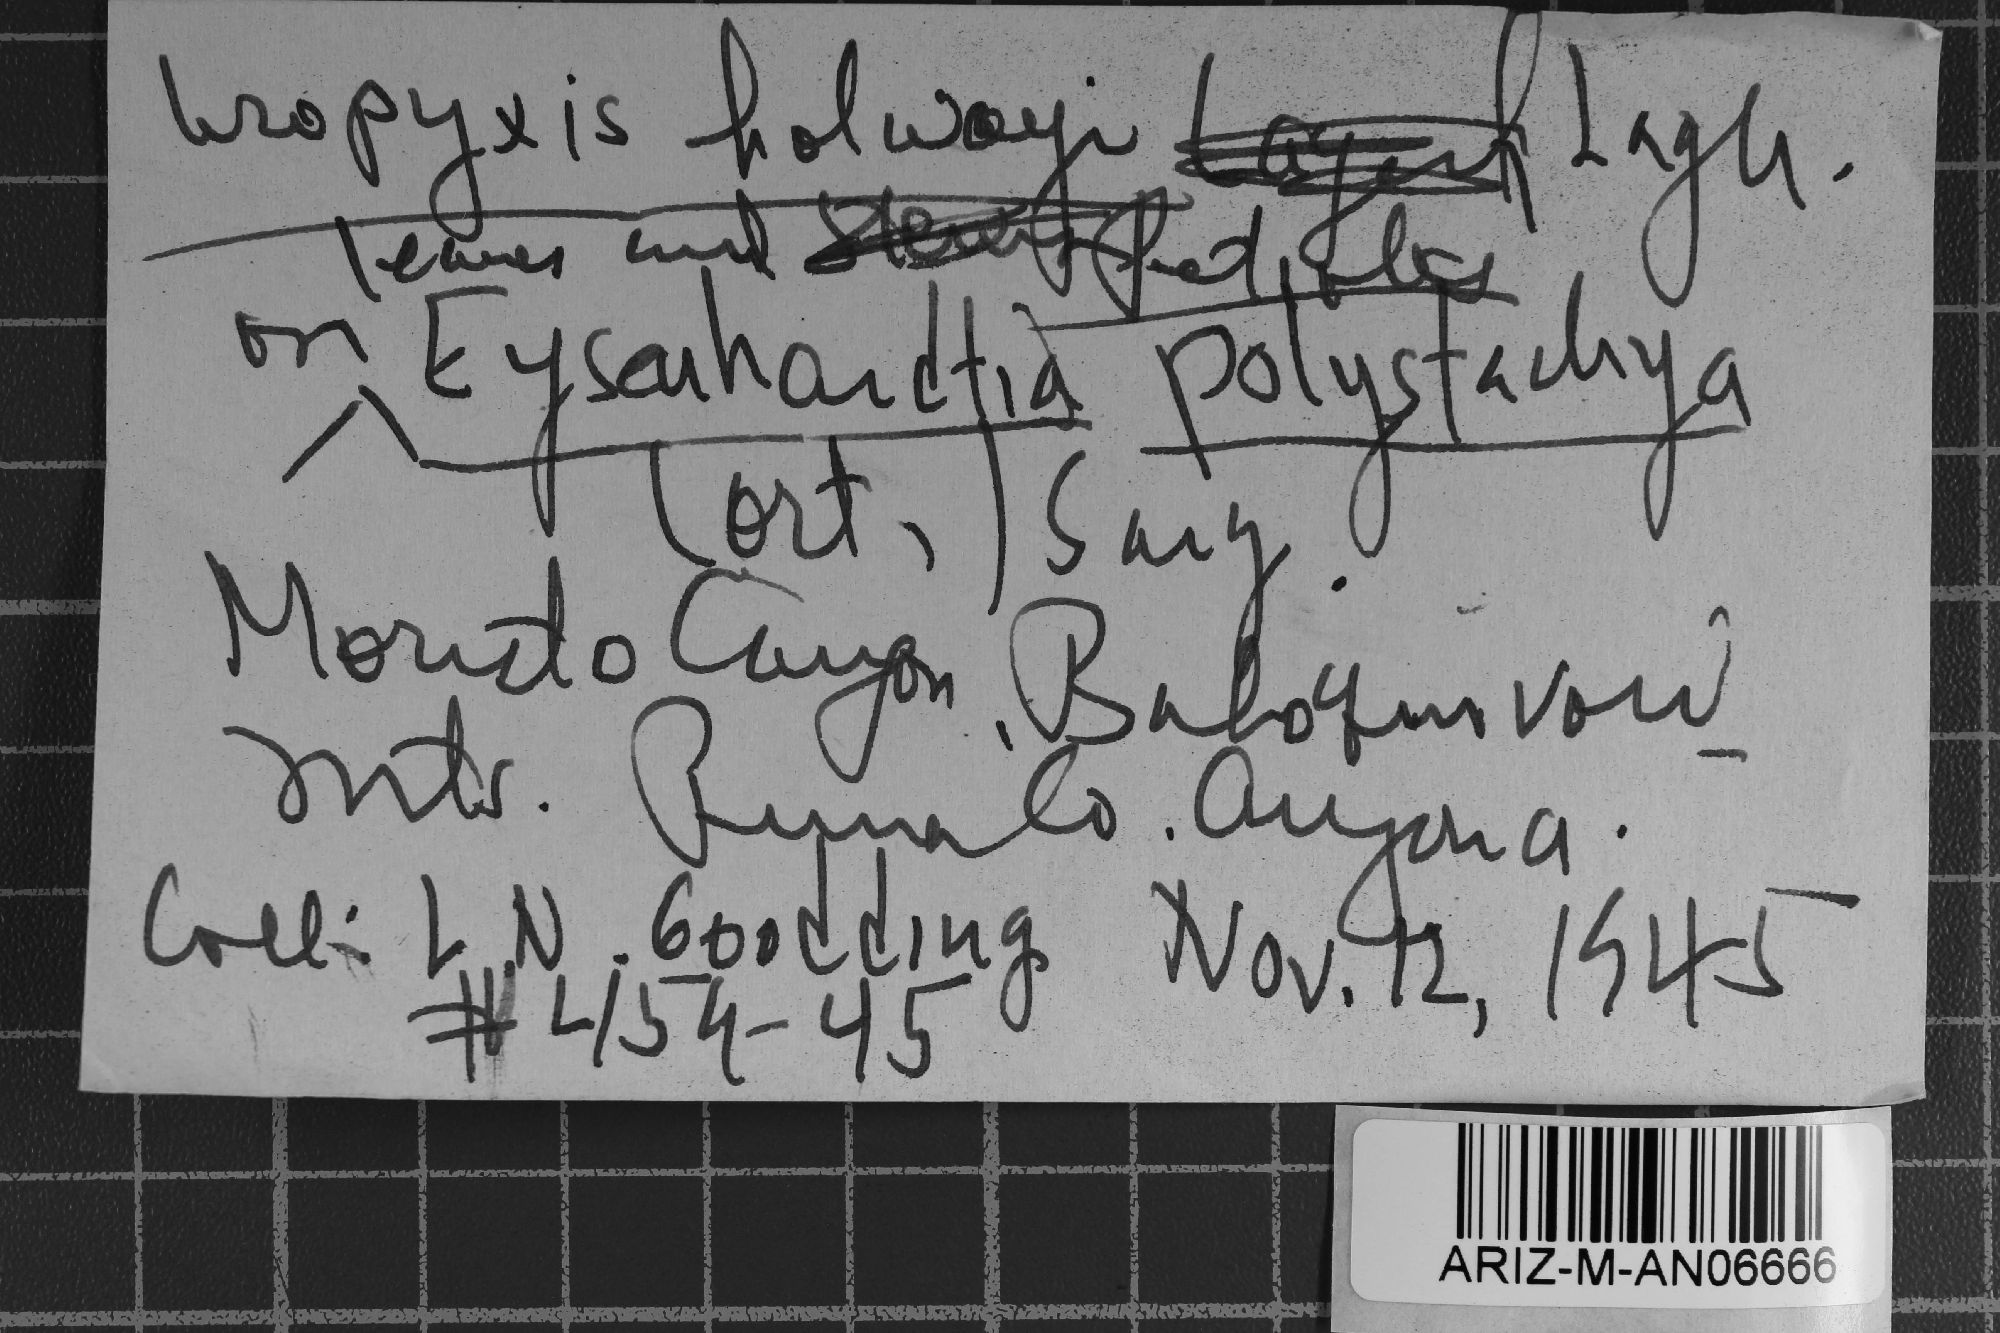 Uropyxis holwayi Lagh.
leaves and pedicles
on Eysenhardtia polystachya
(Ort.) Sarg.
Moristo Canyon, Baboquivari
Mts. Pima Co. Arizona.
Coll: L.N. Goodding Nov. 12, 1945
# 4154-45
ARIZ-M-AN06666